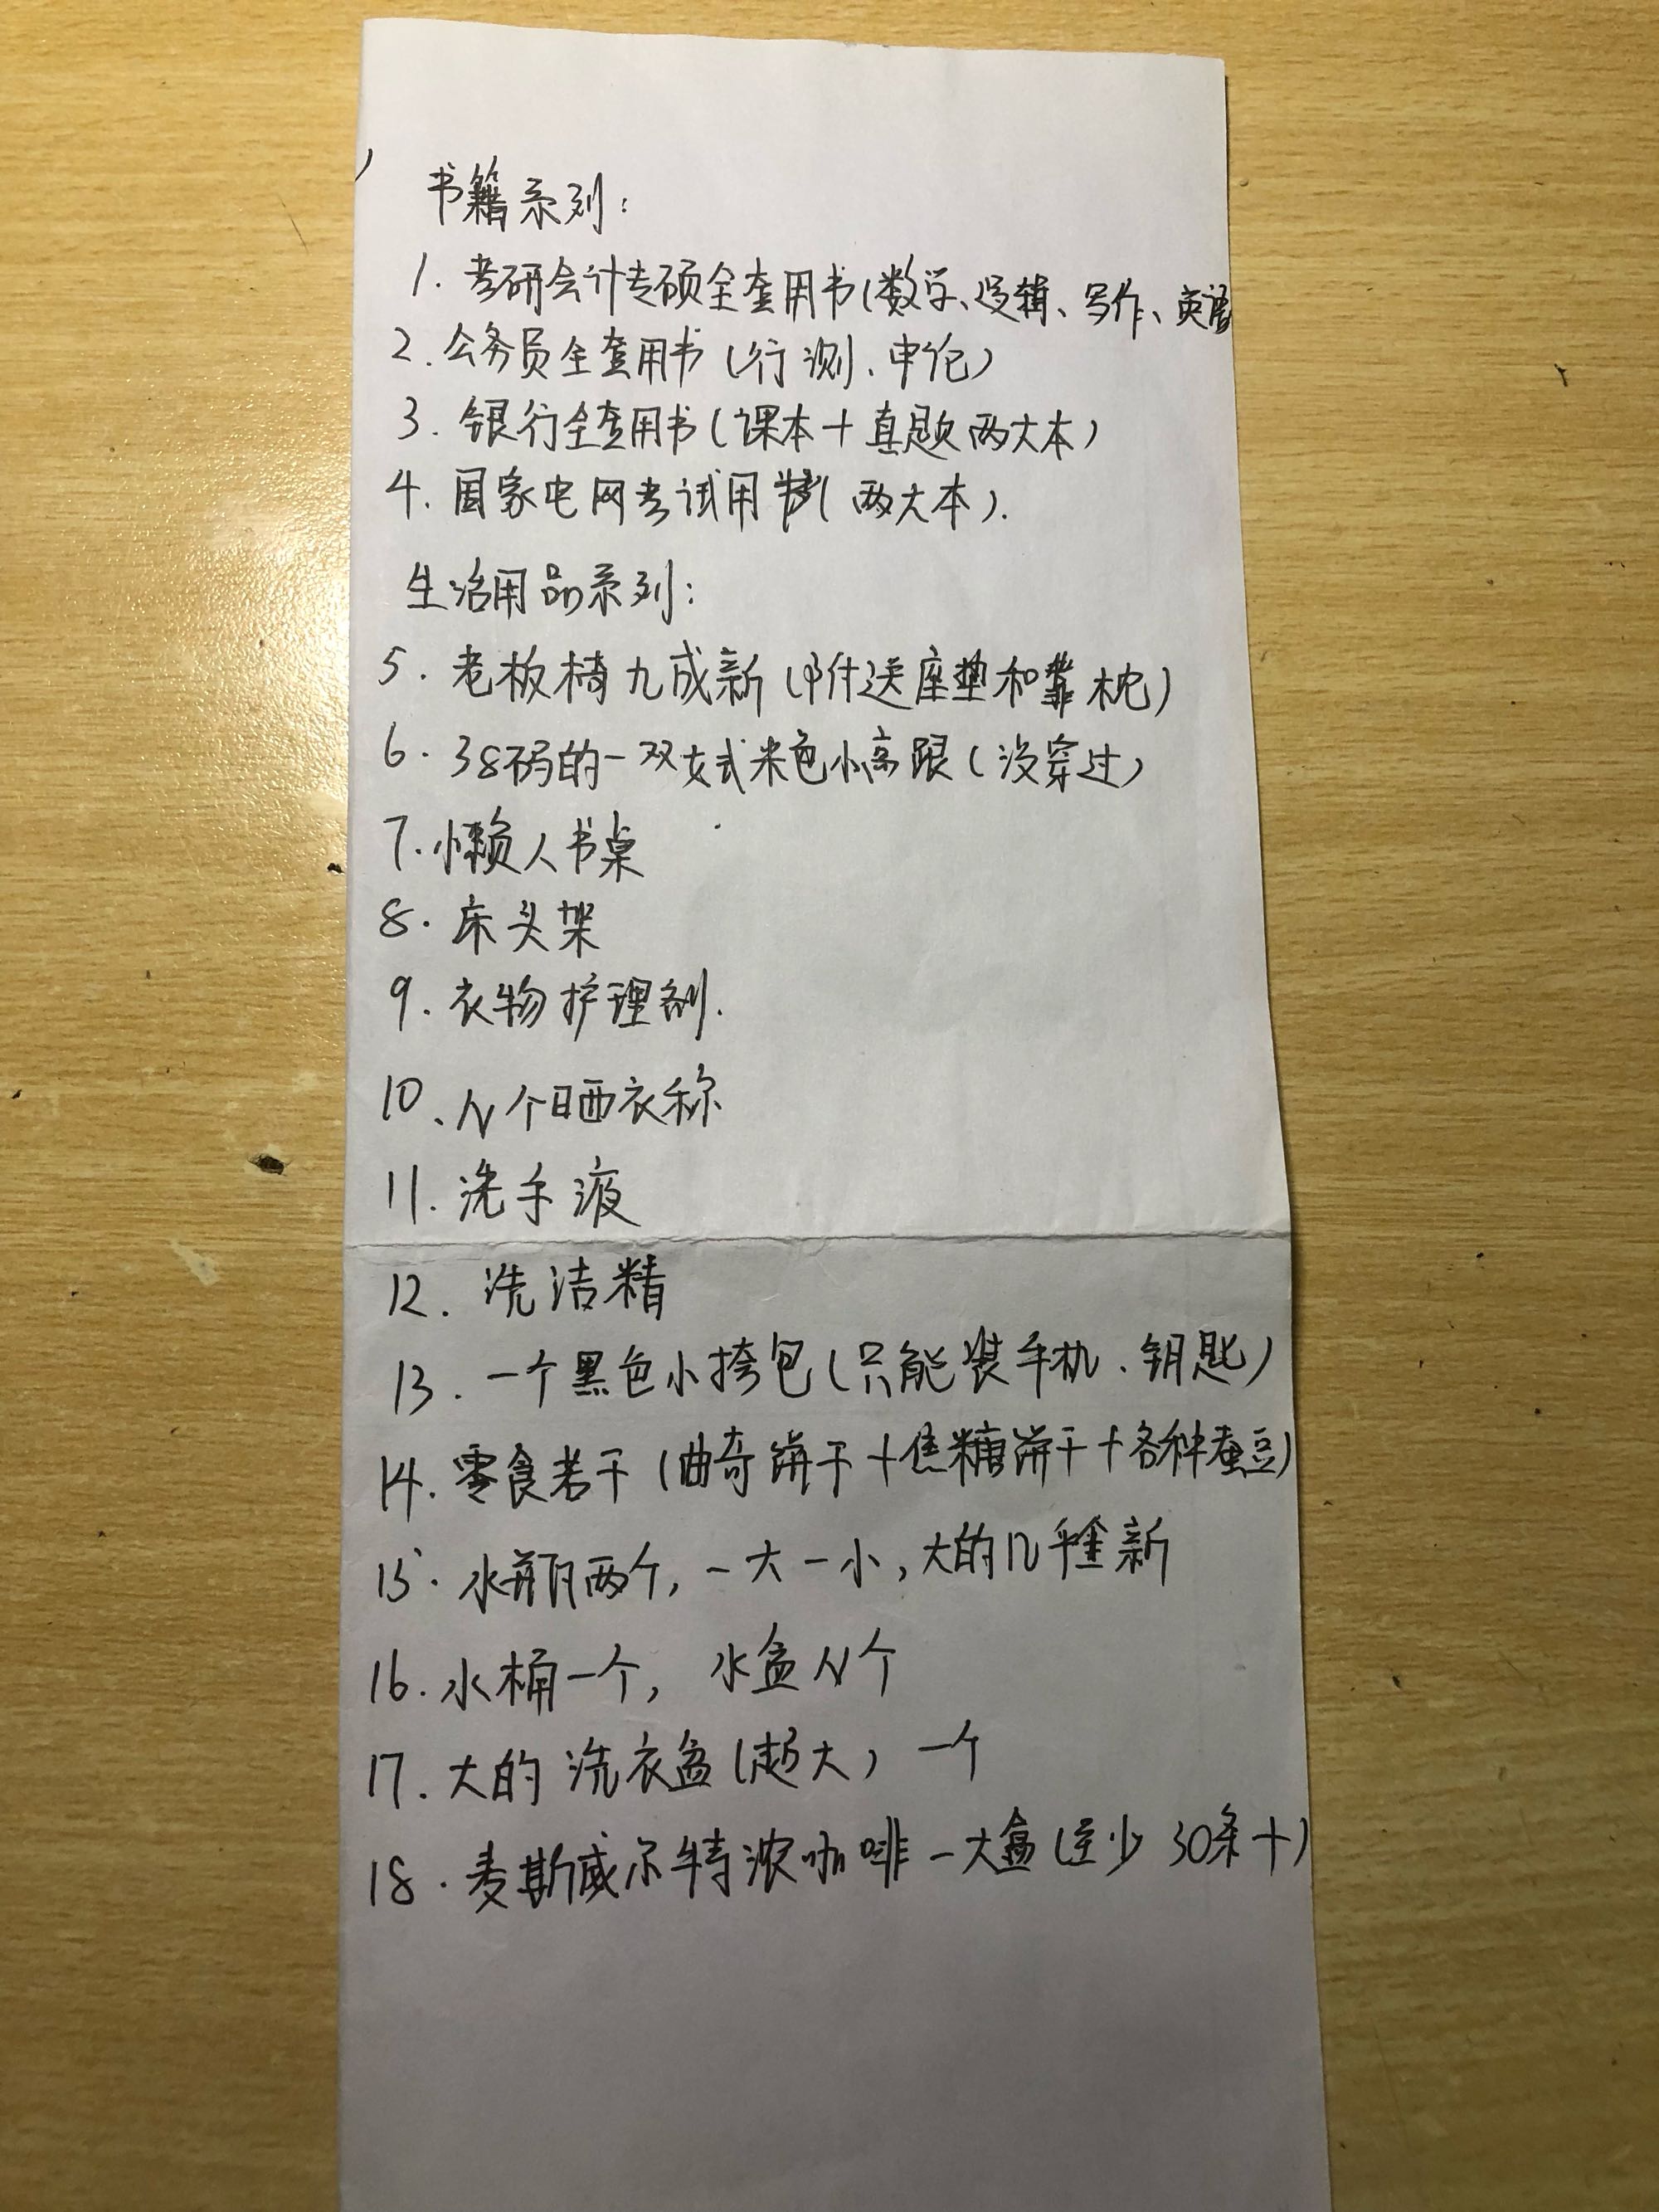 书籍系列：
1. 考研会计专硕全套用书(数学、逻辑、写作、英语
2. 公务员全套用书(行测、申论)
3. 银行全套用书(课本+真题两大本)
4. 国家电网考试用书(两大本).
生活用品系列：
5. 老板椅九成新(附送座垫和靠枕)
6. 38码的一双女式米色小高跟(没穿过)
7. 懒人书桌
8. 床头架
9. 衣物护理剂.
10、N个晒衣称
11. 洗手液
12. 洗洁精
13. 一个黑色小挎包(只能装手机、钥匙)
14. 零食若干(曲奇饼干+焦糖饼干+各种蚕豆)
15. 水瓶两个,一大一小,大的几乎全新
16. 水桶一个, 水盆N个
17. 大的洗衣盆(超大)一个
18. 麦斯威尔特浓咖啡一大盒(至少30条+)